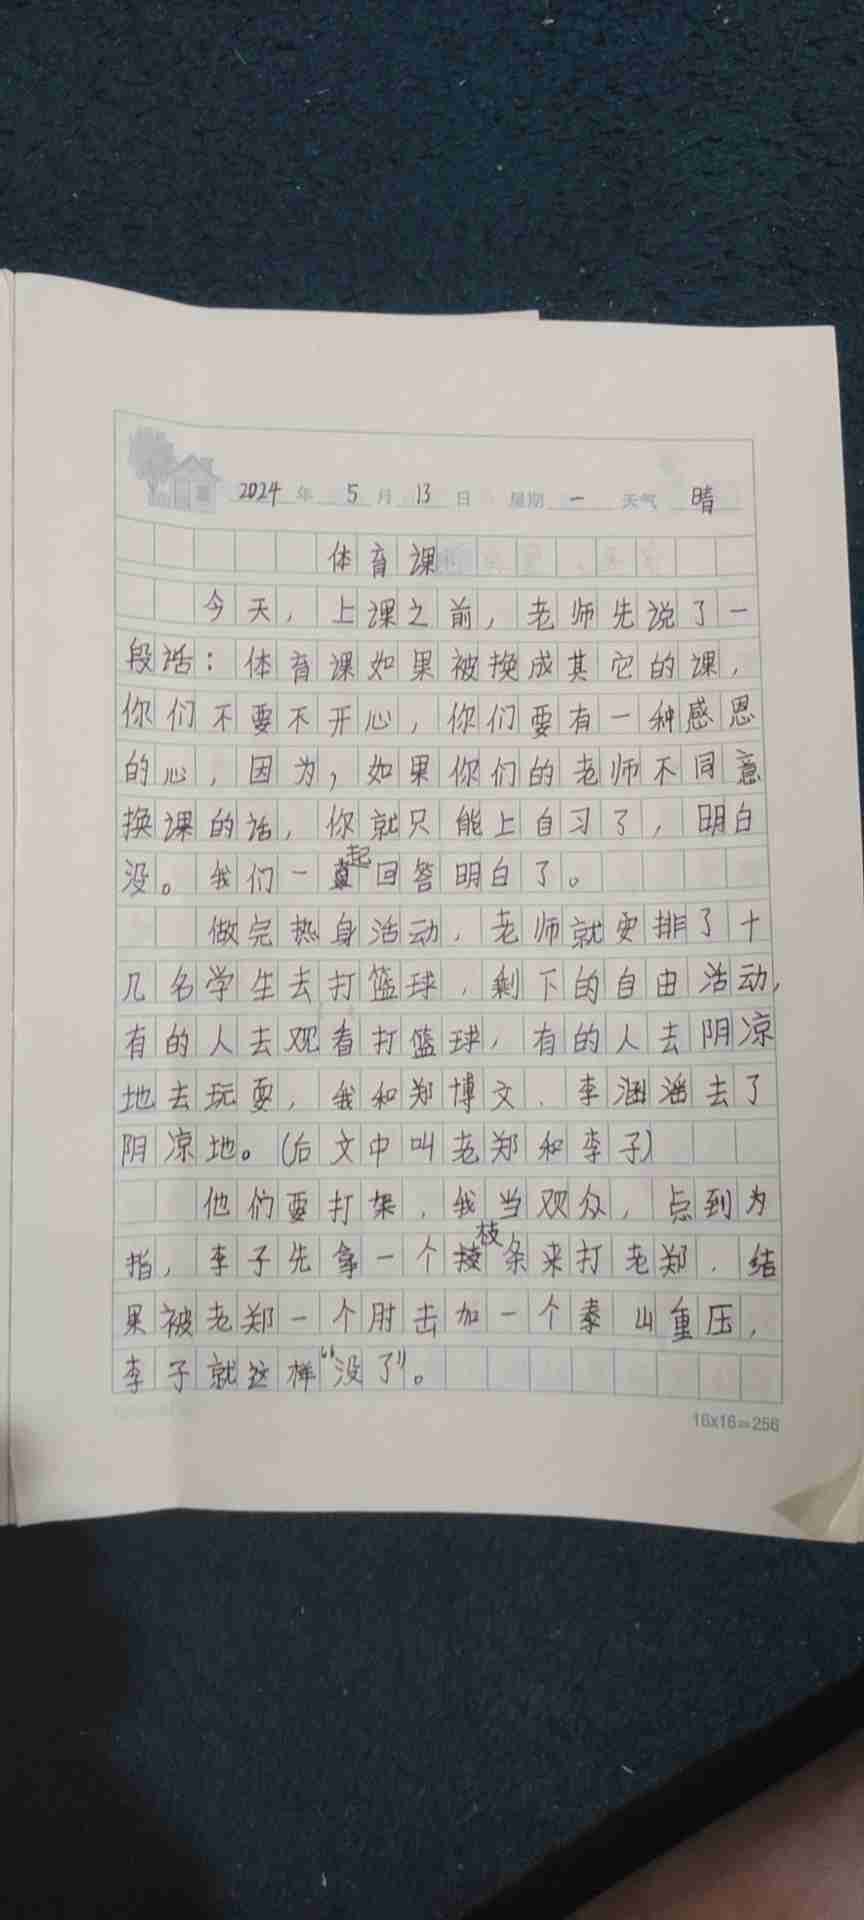 2024年5月13日 星期一 天气晴
体育课
今天，上课之前，老师先说了一
段话：体育课如果被换成其它的课，
你们不要不开心，你们要有一种感恩
的心，因为，如果你们的老师不同意
换课的话，你就只能上自习了，明白
没。我们一起回答明白了。
做完热身活动，老师就安排了十
几名学生去打篮球，剩下的自由活动，
有的人去观看打篮球，有的人去阴凉
地去玩耍，我和郑博文、李涵滛去了
阴凉地。(后文中叫老郑和李子)
他们要打架，我当观众，点到为
指，李子先拿一个枝条来打老郑，结
果被老郑一个肘击加一个泰山重压，
李子就这样“没了”。
16x16=256